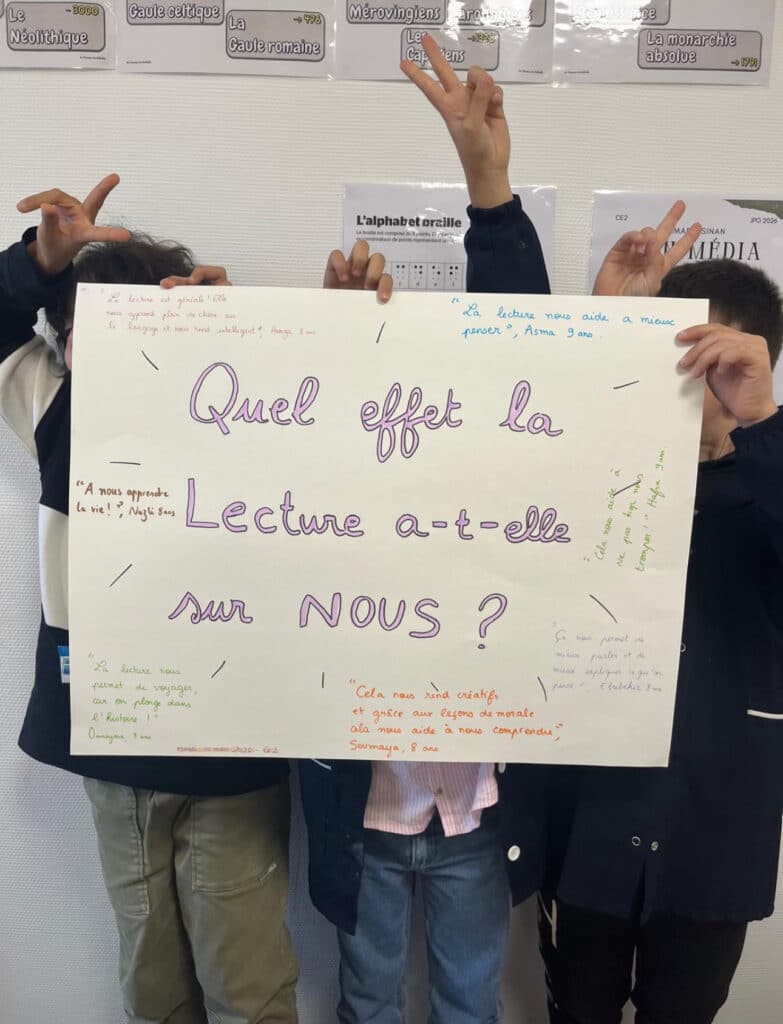 Le
Néolithique
→ -3000
Gaule celtique
La
Gaule romaine
→ 476
Mérovingiens
Les
→ 1328
La monarchie
absolue
→ 1791
L'alphabet braille
CE2
JPO 2026
MÉDIA
"La lecture est géniale ! Elle
nous apprend plein de chose sur
le langage et nous rend intelligent",
8 ans
"La lecture nous aide a mieux
penser", Asma 9 ans.
Quel effet la
Lecture a-t-elle
sur NOUS ?
"A nous apprendre
la vie !", Nazli 8 ans
"Cela nous aide à
ne pas trop nous
tromper !" Hafsa 9 ans
"Ça nous permet de
mieux parler et de
mieux expliquer ce qu'on
pense" 8 ans
"La lecture nous
permet de voyager,
car on plonge dans
l'histoire !"
8 ans
"Cela nous rend créatifs
et grâce aux leçons de morale
cela nous aide à nous comprendre",
Soumaya, 8 ans
CE2